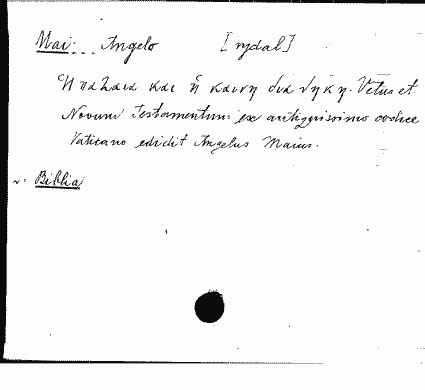 Mai: Angelo [wydal]
Ἡ παλαια και ἡ καινη διαθηκη. Vetus et
Novum Testamentum ex antiquissimo codice
Vaticano edidit Angelus Maius.
v. Biblia